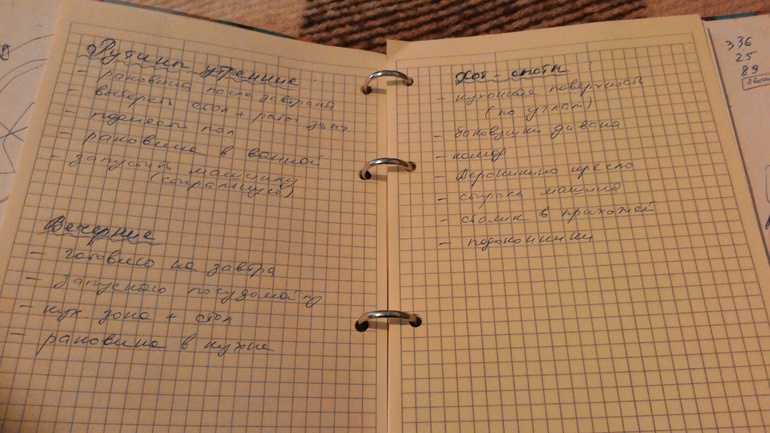 Рутины утренние
- раковина после завтрака
- вытереть стол + рабоч зону
- подмести пол
- раковина в ванной
- запустить машинку
(стиральную)
Вечерние
- готовлю на завтра
- запускаю посудомойку
- кух. зона + стол
- раковина в кухне
Хот-споты
- кухонная поверхность
(по углам)
- боковушки дивана
- комод
- кресло
- стираль машина
- столик в прихожей
- подоконники
336
25
89